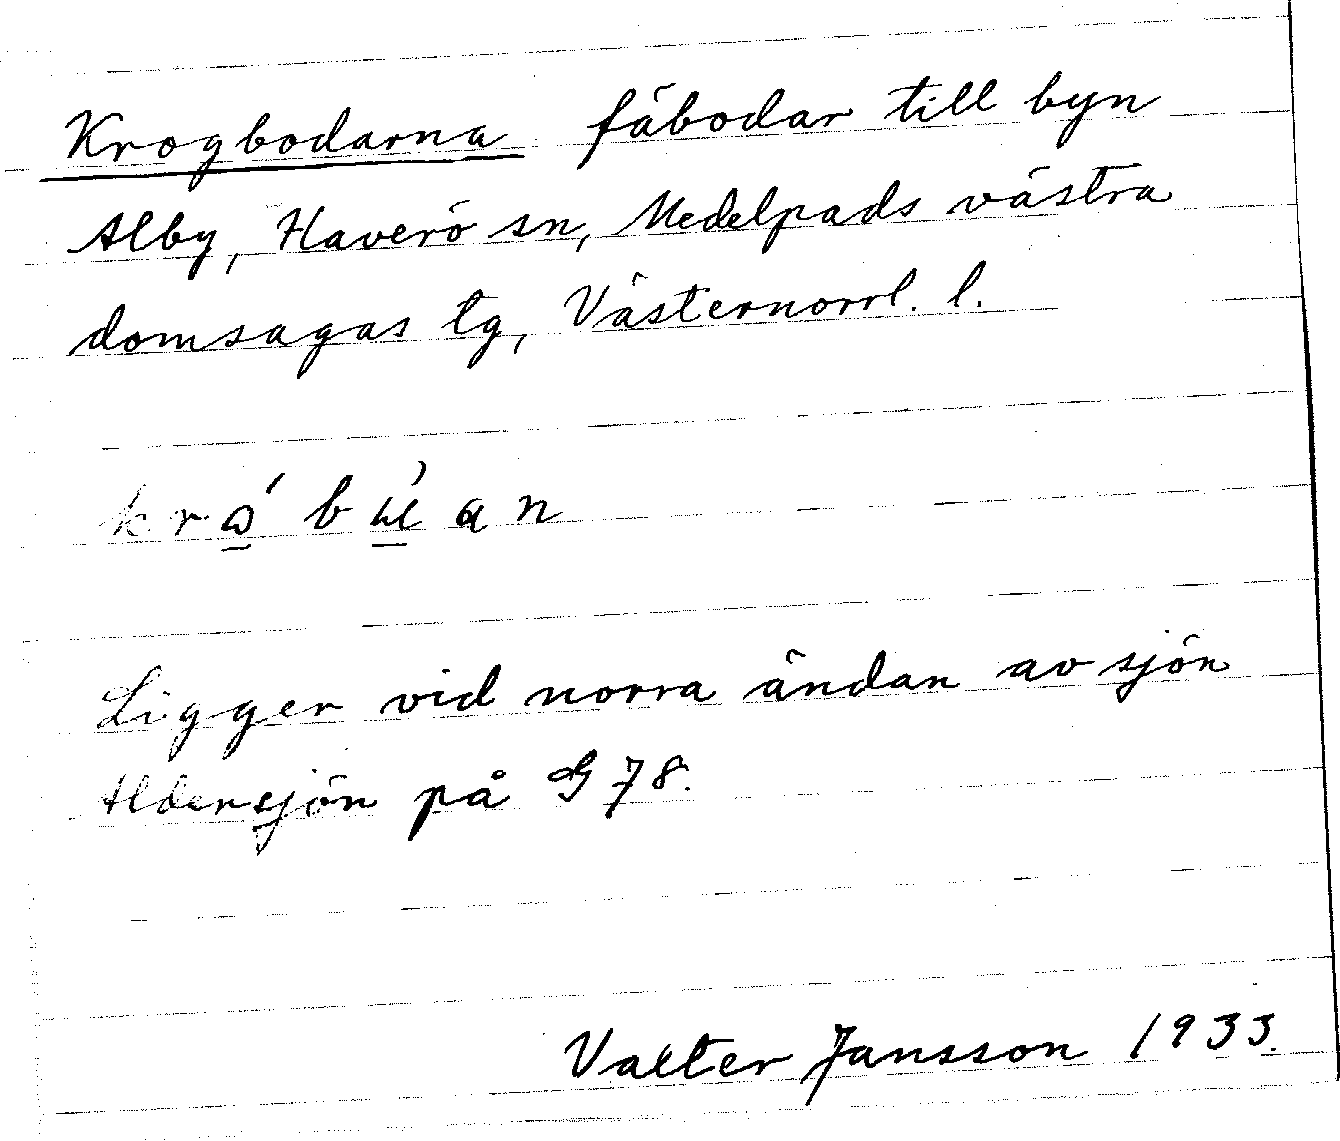 Krogbodarna fäbodar till byn
Alby, Haverö sn, Medelpads västra
domsagas tg, Västernorrl. l.
Ligger vid norra ändan av sjön
Aldersjön på G 78.
Valter Jansson 1933.